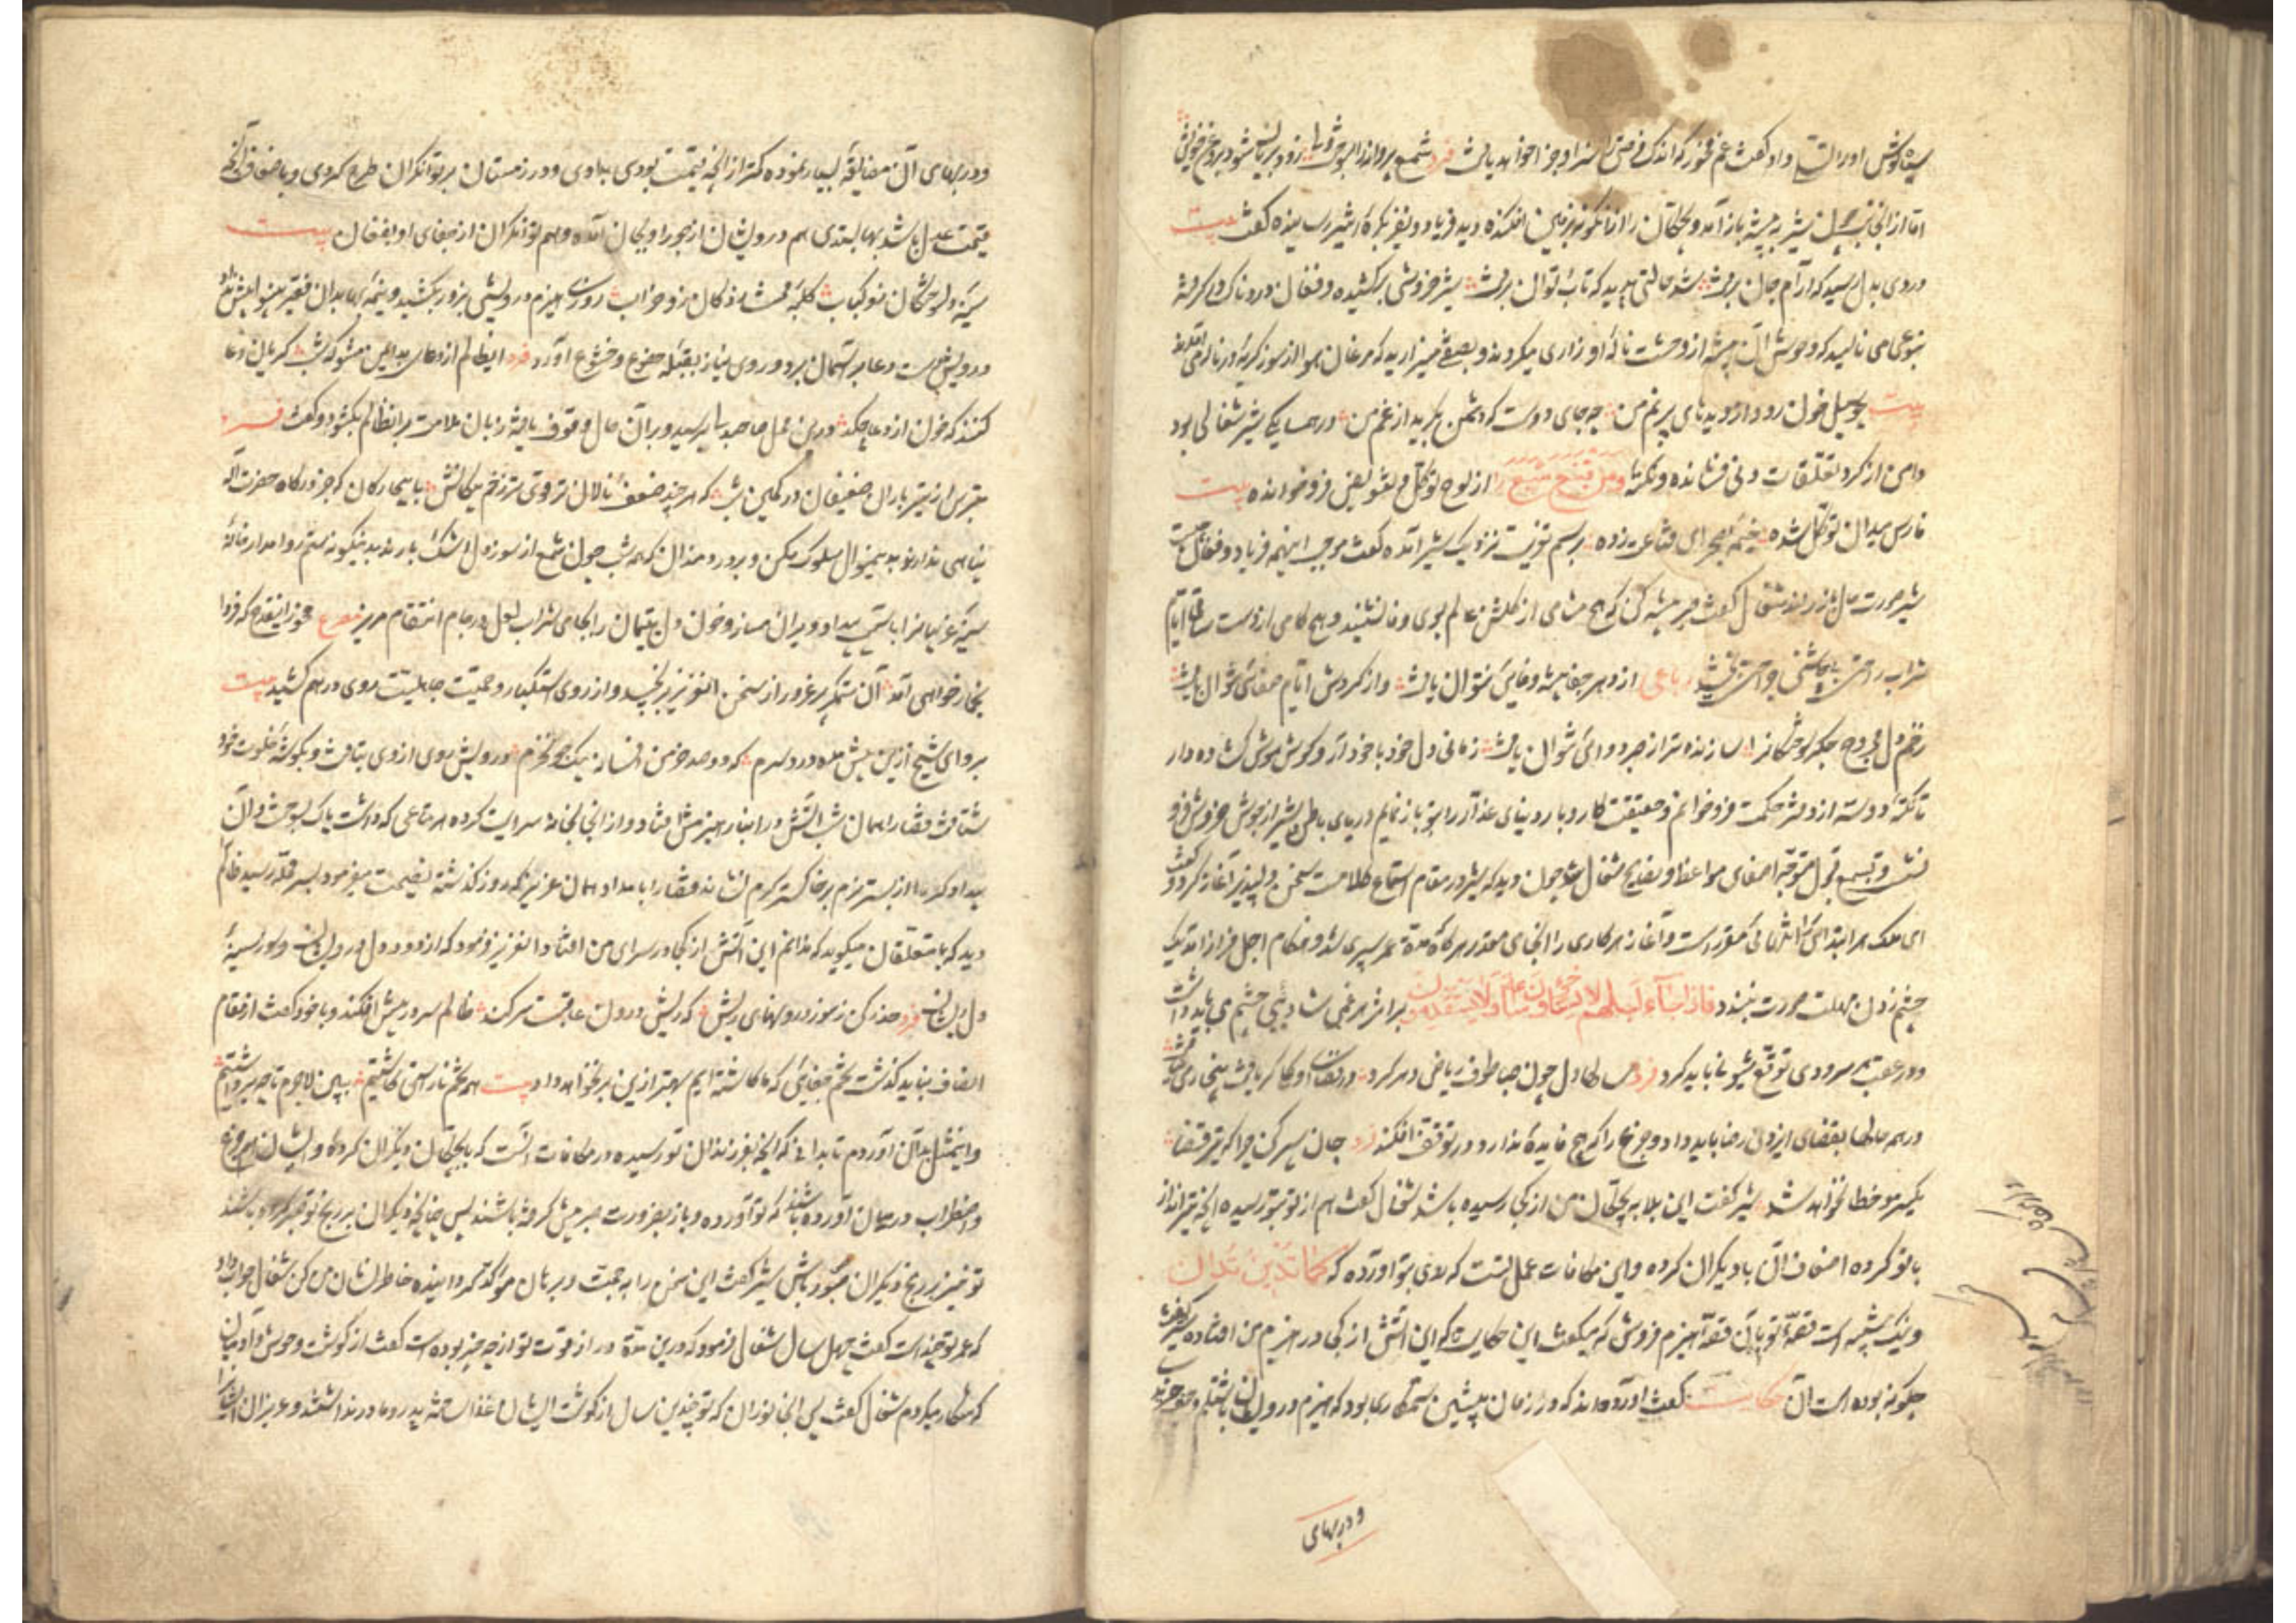 سیاه‌گوش او را تسلی داد و گفت غم مخور که اندک فرصتی را سزا و جزا خواهد یافت فرد شمع پروانه را بسوخت ولی زود بریان شود بروغن خویش
اما از آنجانب چون شیر به بیشه باز آمد و بچگان را از آنگونه بر زمین افکنده دید فریاد و نفیر بکره اثیر رسانیده گفت بیت
دردی بدل رسید که آرام جان برفت شد حالتی پدید که تاب و توان برفت شیر خروشی برکشیده و فغان دردناک در گرفته
بنوعی می نالید که وحوش آن بیشه از وحشت ناله او زاری میکردند و بصعبی میزارید که مرغان هوا از سوز گریه او در ناله می آمدند
بیت چو سیل خون رود از دیده‌های پر نم من چه جای دوست که دشمن بگرید از غم من در همسایگی شیر شغالی بود
دامن از گرد تعلقات دنی فشانده و نکته من قنع شبع را از لوح توکل و تفویض فرو خوانده بیت
فارس میدان توکل شده خیمه بصحرای قناعت زده برسم تعزیت نزدیک شیر آمده گفت موجب اینهمه فریاد و فغان چیست
شیر صورت حال باز راند شغال گفت صبر پیشه کن که هیچ مشامی از گلشن عالم بوی وفا نشنید و هیچ کامی از دست ساقی ایام
شراب راحت بی چاشنی جراحت نچشید رباعی از دهر جفا پیشه وفائی نتوان یافت وز گردش ایام صفائی نتوان یافت
زخم دل مجروح جگر سوختگانرا سازنده‌تر از صبر دوائی نتوان یافت زمانی دل خود با خود آر و گوش هوش گشاده دار
تا نکته دو سه از دفتر حکمت فرو خوانم و حقیقت کار و بار دنیای غدار را بتو باز نمایم دریای باطن شیر از جوش و خروش فرو
نشست و بسمع قبول متوجه اصغای مواعظ و نصایح شغال شد چون دید که شیر در مقام استماع کلامست سخن دلپذیر آغاز کرد و گفت
ای ملک هر ابتدائی را انتهائی مقرر است و آغاز هر کاری را انجامی مقدر هرگاه مدت عمر سپری شد و هنگام اجل فراز آمد یک
چشم زدن مهلت صورت نبندد فاذا جاء اجلهم لا یستأخرون ساعة و لا یستقدمون بر اثر هر غمی شادیی چشم می باید داشت
و در عقب هر سرودی توقع شیونی باید کرد فرد
در همه حالها بقضای ایزدی رضا باید داد و جزع را که هیچ فایده ندارد در توقف افکند فرد جان سپر کن چرا که تیر قضا
یکسر مو خطا نخواهد شد شیر گفت این بلا به بچگان من از کجا رسیده باشد شغال گفت هم از تو بتو رسیده آنچه تیرانداز
با تو کرده اضعاف آن با دیگران کرده و این مکافات عمل تست که روی بتو آورده که کما تدین تدان
و نیک شبیه است قصه تو بآن قصه هیزم فروش که میگفت این حکایت که این آتش از کجا در هیزم من افتاده شیر گفت
چگونه بوده است آن حکایت گفت آورده‌اند که در زمان پیشین ستمکاری بود که هیزم درویشان بستم خریدی
و در بهای
و در بهای آن مضایقه بسیار نموده کمتر از آنچه قیمت بودی بدادی و در زمستان بر توانگران طرح کردی و باضعاف آنچه
قیمت عدل باشد بها بستدی هم درویشان از جور او بجان آمده و هم توانگران از جفای او بفغان بیت
سینه دلخستگان زو کباب کلبه محنت زدگان زو خراب روزی هیزم درویشی بزور بکشید و نیمه بها بدان فقیر بینوا بیش نداد
درویش دست دعا بر آسمان برد و روی نیاز بقبله خضوع و خشوع آورد فرد ای ظالم از دعای بد ایمن مشو که شب گریان دعا
کنند که خون از دعا چکد درین محل صاحبدلی برسید و بر آن حال وقوف یافته زبان ملامت بر آن ظالم بگشود و گفت فرد
بترس از تیر باران ضعیفان در کمین شب که هر چند ضعف نالان‌تر قوی‌تر زخم پیکانش با بیچارگان که جز درگاه حضرت اله
پناهی ندارند بدینمنوال سلوک مکن و بر دردمندان که همه شب چون شمع از سوز دل اشک بارند بدینگونه ستم روا مدار خانه
سینه غریبانرا باستم بیداد ویران مساز و خون دل یتیمان را بجای شراب لعل در جام انتقام مریز مصرع مخور این قدح که فردا
بخمار خواهی آمد آن ستمگر پر غرور از سخن آن عزیز برنجید و از روی استکبار و حمیت جاهلیت روی در هم کشید بیت
برو ای شیخ ازین بیش مده درد سرم که دو صد خرمن افسانه بیک جو نخرم درویش روی از وی بتافت و بگوشه خلوت خود
شتافت قضا را همان شب آتش در انبار هیزمش فتاد و از آنجا بخانه سرایت کرده هر متاعی که داشت پاک بسوخت و آن
بیدادگر را از بستر نرم بر خاکستر گرم نشاند قضا را بامداد همان عزیز که روز گذشته نصیحت میفرمود بسر محله رسید ظالم
دید که با متعلقان میگوید که ندانم این آتش از کجا در سرای من افتاد آن عزیز فرمود که از دود دل درویشان و سوز سینه
دل ریشان فرد حذر کن ز سوز درونهای ریش که ریش درون عاقبت سر کند ظالم سر در پیش افکند و با خود گفت از مقام
انصاف نباید گذشت تخم جفائی که ما کاشته‌ایم بهتر ازین بر نخواهد داد بیت همه تخم ناراستی کاشتیم ببین لاجرم تا چه برداشتیم
و این مثل بدان آوردم تا بدانی که آنچه بفرزندان تو رسیده در مکافات آنست که با بچگان دیگران کرده و ایشان هم جزع
و اضطراب در میان آورده باشند که تو آورده و باز بضرورت صبر پیش گرفته باشند پس چنانچه دیگران بر رنج تو صبر کرده باشند
تو نیز بر رنج دیگران صبور باش شیر گفت این سخن را به حجت و برهان مؤکد گردانیده خاطر نشان من کن شغال جواب داد
که عمر تو چند است گفت چهل سال شغال فرمود که درین مدت دراز قوت تو از چه چیز بوده است گفت از گوشت وحوش و آدمیان
که شکار میکردم شغال گفت پس آن جانوران که تو چندین سال از گوشت ایشان غذا ساخته پدر و مادر نداشتند و عزیزان ایشانرا